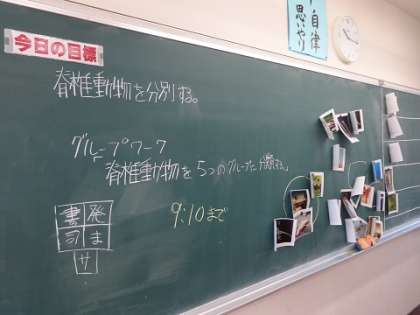 自律
思いやり
今日の目標
脊椎動物を分別する。
グループワーク
脊椎動物を5つのグループに分類する。
9:10まで
書 発
司 ま
サ